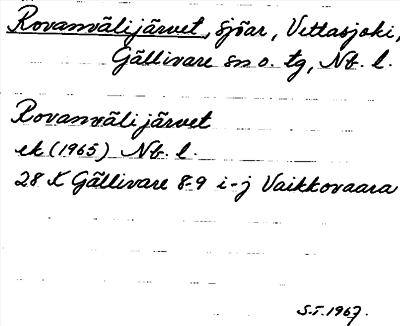 Rovanvälijärvet, sjöar, Vettasjoki,
Gällivare sn o. tg, Nb. l.
Rovanvälijärvet
ek (1965) Nb. l.
28 K Gällivare 8-9 i-j Vaikkovaara
S.F. 1967.